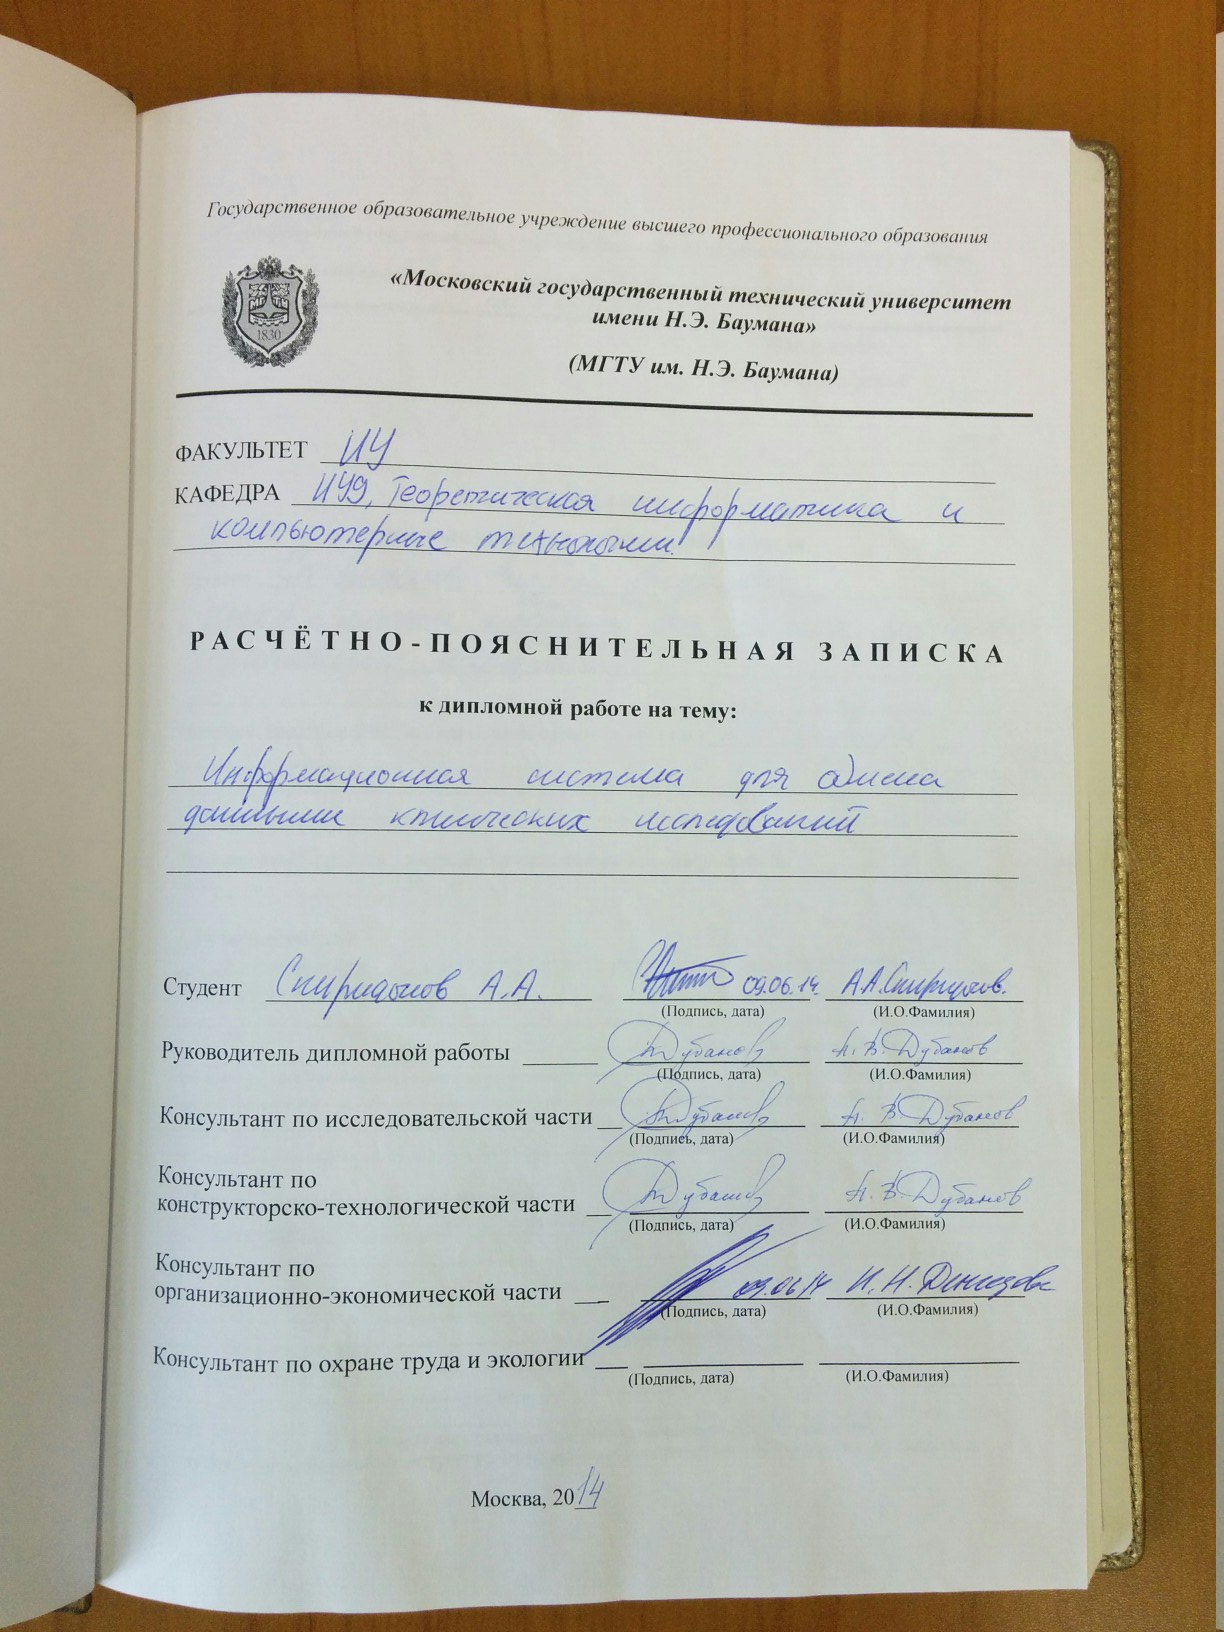 Государственное образовательное учреждение высшего профессионального образования
«Московский государственный технический университет
имени Н.Э. Баумана»
(МГТУ им. Н.Э. Баумана)
1830
ФАКУЛЬТЕТ ИУ
КАФЕДРА ИУ9, Теоретическая информатика и
компьютерные технологии.
РАСЧЁТНО-ПОЯСНИТЕЛЬНАЯ ЗАПИСКА
к дипломной работе на тему:
Информационная система для обмена
данными клинических исследований
Студент Спиридонов А.А. 09.06.14. А.А.Спиридонов.
(Подпись, дата) (И.О.Фамилия)
Руководитель дипломной работы Дубанов А. В. Дубанов
(Подпись, дата) (И.О.Фамилия)
Консультант по исследовательской части Дубанов А. В. Дубанов
(Подпись, дата) (И.О.Фамилия)
Консультант по
конструкторско-технологической части Дубанов А. В. Дубанов
(Подпись, дата) (И.О.Фамилия)
Консультант по
организационно-экономической части 09.06.14 И. Н.
(Подпись, дата) (И.О.Фамилия)
Консультант по охране труда и экологии
(Подпись, дата) (И.О.Фамилия)
Москва, 2014